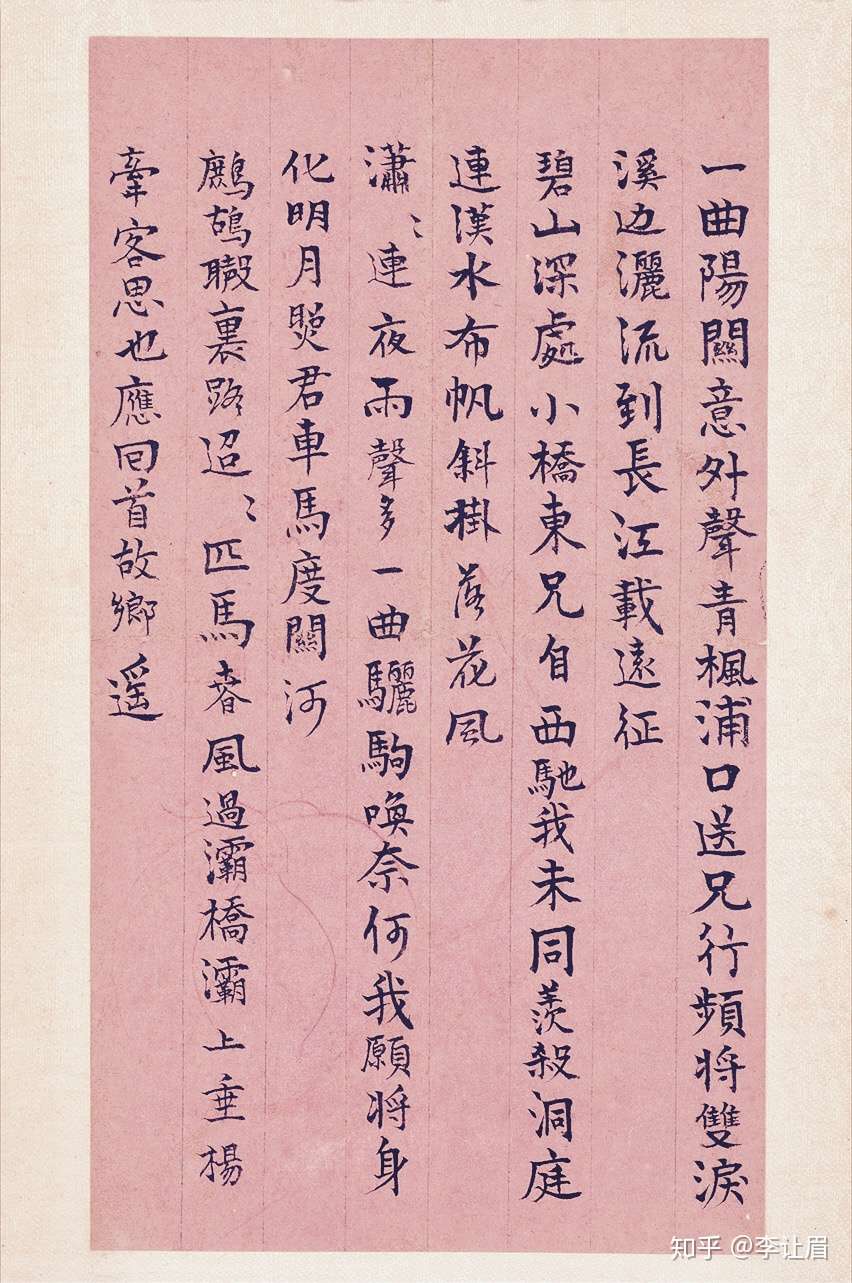 一曲陽關意外聲青楓浦口送兄行頻將雙淚
溪边灑流到長江載遠征
碧山深處小橋東兄自西馳我未同羨殺洞庭
連漢水布帆斜掛落花風
瀟〻連夜雨聲多一曲驪駒喚奈何我願將身
化明月照君車馬度關河
鷓鴣聲裏路迢〻匹馬春風過灞橋灞上垂楊
牽客思也應回首故鄉遥
知乎 @李让眉